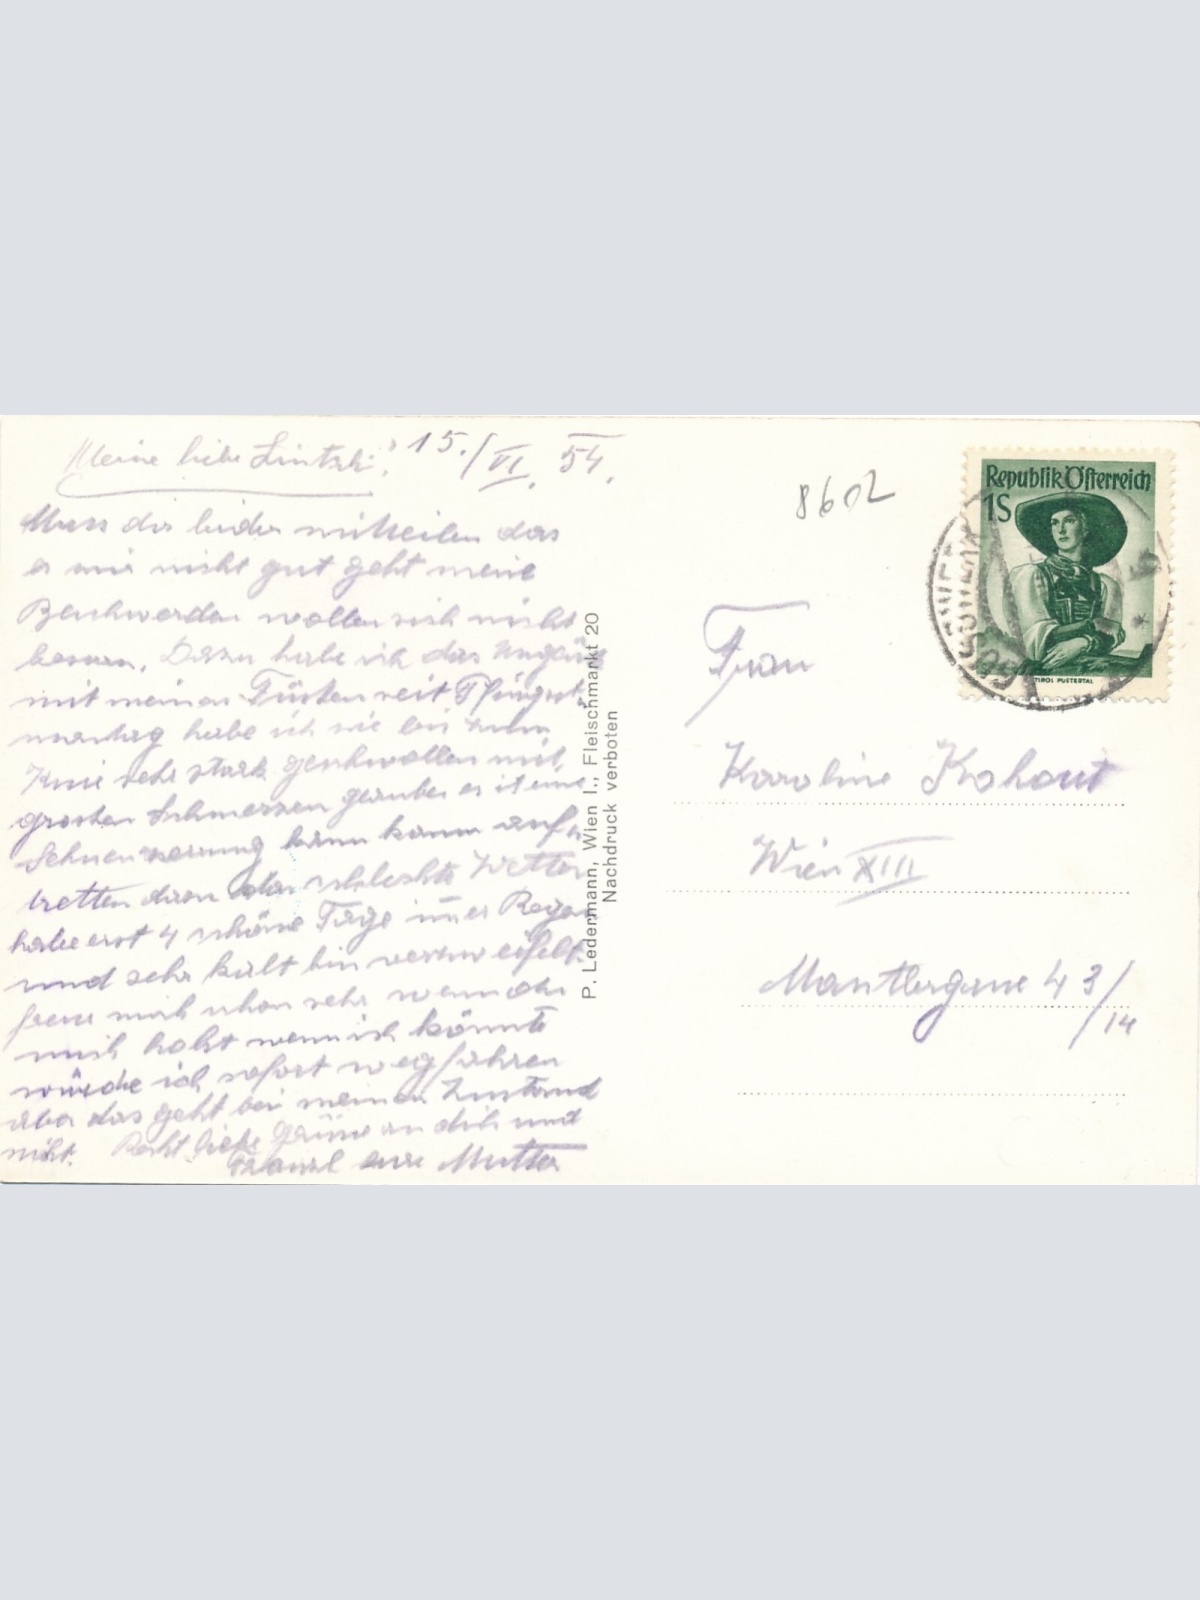 Meine liebe 15./VI. 54.
Muss dir leider mitteilen das
es mir nicht gut geht meine
Beschwerden wollen sich nicht
bessern. Dazu habe ich das Unglück
mit meinen Füssen seit Pfingst-
montag habe ich sie bis zum
Knie sehr stark geschwollen mit
grossen Schmerzen glaube es ist eine
Sehnenzerrung kann kaum auf
tretten dann das schlechte Wetter
habe erst 4 schöne Tage immer Regen
und sehr kalt bin verzweifelt.
freue mich schon sehr wenn du
mich holst wenn ich könnte
würde ich sofort wegfahren
aber das geht bei meinen Zustand
nicht. Recht liebe Grüsse an dich und
Franzl eure Mutter
P. Ledermann, Wien I., Fleischmarkt 20
Nachdruck verboten
8602
Republik Österreich
1S
TIROL PUSTERTAL
Frau
Karoline Kohout
Wien XIII
Mantlergasse 43/
/14